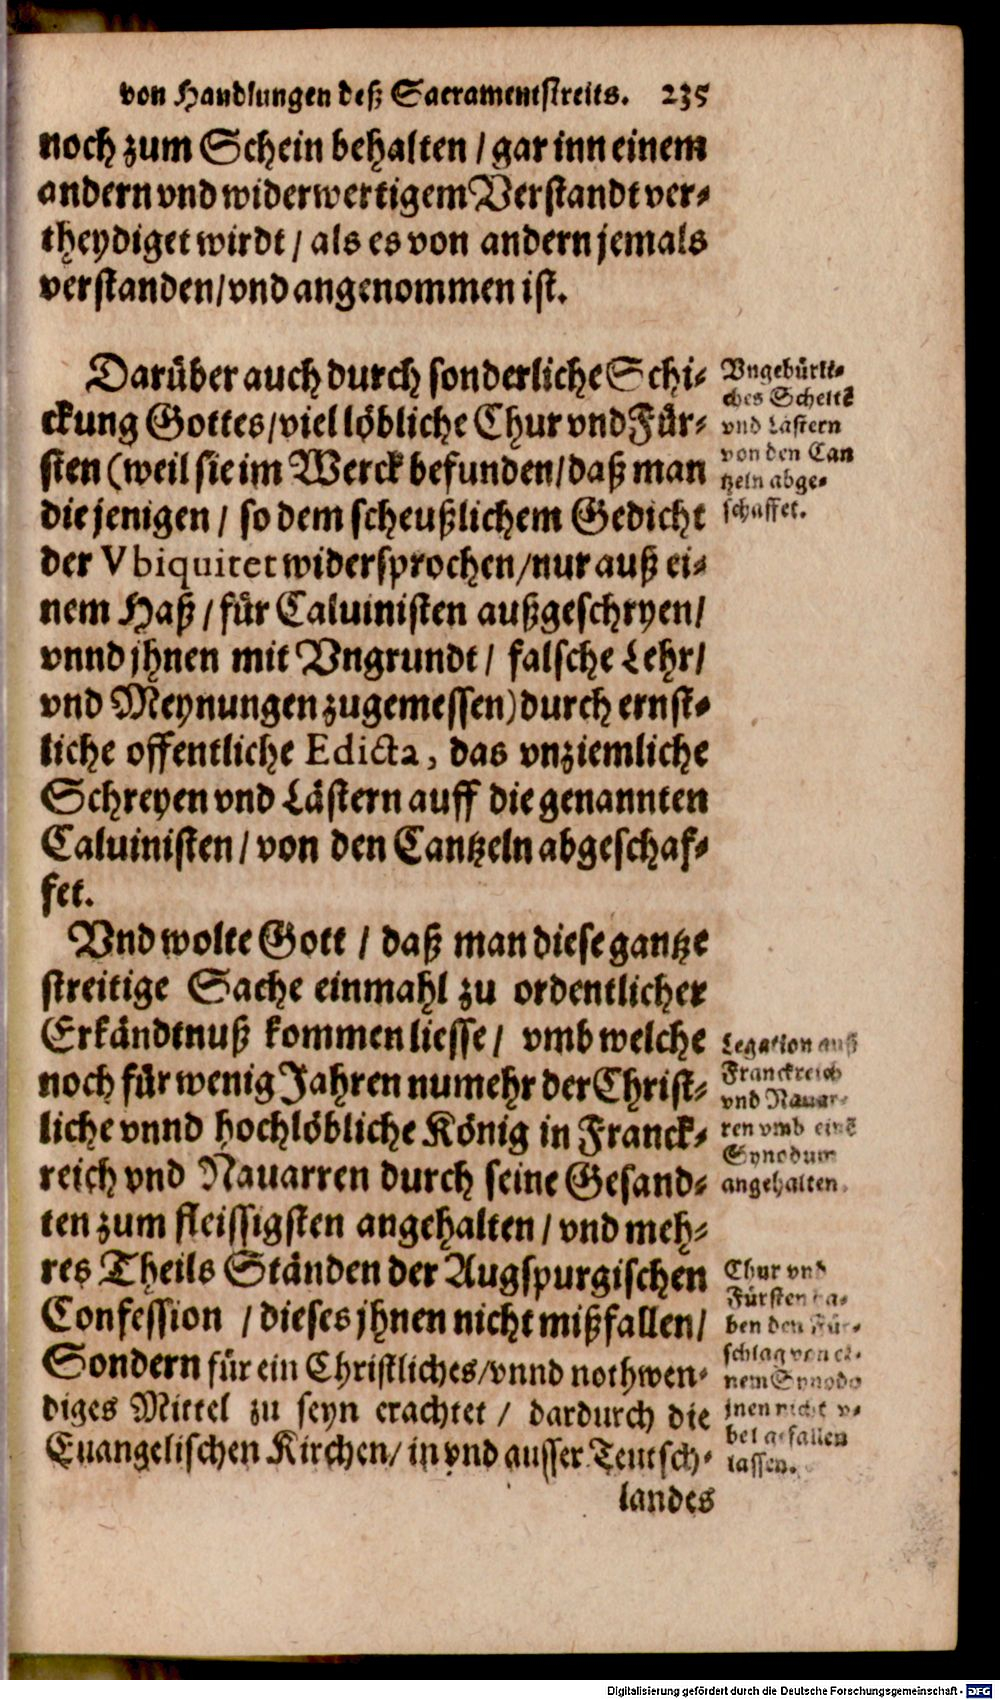 von Handlungen deß Sacramentstreits. 235
noch zum Schein behalten / gar inn einem
andern vnd widerwertigem Verstandt ver-
theydiget wirdt / als es von andern jemals
verstanden / vnd angenommen ist.
Darüber auch durch sonderliche Schi-
ckung Gottes / viel löbliche Chur vnd Für-
sten (weil sie im Werck befunden / daß man
die jenigen / so dem scheußlichem Gedicht
der Vbiquitet widersprochen / nur auß ei-
nem Haß / für Caluinisten außgeschryen /
vnnd jhnen mit Vngrundt / falsche Lehr /
vnd Meynungen zugemessen) durch ernst-
liche offentliche Edicta, das vnziemliche
Schreyen vnd Lästern auff die genannten
Caluinisten / von den Cantzeln abgeschaf-
fet.
Vngebürli-
ches Scheltē
vnd Lästern
von den Can
tzeln abge-
schaffet.
Vnd wolte Gott / daß man diese gantze
streitige Sache einmahl zu ordentlicher
Erkändtnuß kommen liesse / vmb welche
noch für wenig Jahren numehr der Christ-
liche vnnd hochlöbliche König in Franck-
reich vnd Nauarren durch seine Gesand-
ten zum fleissigsten angehalten / vnd meh-
res Theils Ständen der Augspurgischen
Confession / dieses jhnen nicht mißfallen /
Sondern für ein Christliches / vnnd nothwen-
diges Mittel zu seyn erachtet / dardurch die
Euangelischen Kirchen / in vnd ausser Teutsch-
landes
Legation auß
Franckreich
vnd Nauar-
ren vmb einē
Synodum
angehalten.
Chur vnd
Fürsten ha-
ben den Für-
schlag von ei-
nem Synodo
jnen nicht v-
bel gefallen
lassen.
Digitalisierung gefördert durch die Deutsche Forschungsgemeinschaft - DFG